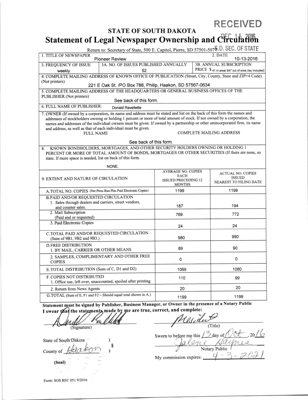 RECEIVED
STATE OF SOUTH DAKOTA
Statement of Legal Newspaper Ownership and Circulation
S.D. SEC. OF STATE
Return to: Secretary of State, 500 E. Capitol, Pierre, SD 57501-5070
1. TITLE OF NEWSPAPER
Pioneer Review
2. DATE
10-13-2016
3. FREQUENCY OF ISSUE
weekly
3A. NO. OF ISSUES PUBLISHED ANNUALLY
52
3B. ANNUAL SUBSCRIPTION
PRICE $
4. COMPLETE MAILING ADDRESS OF KNOWN OFFICE OF PUBLICATION (Street, City, County, State and ZIP+4 Code)
(Not printers)
221 E Oak St. PO Box 788, Philip, Haakon, SD 57567-0634
5. COMPLETE MAILING ADDRESS OF THE HEADQUARTERS OR GENERAL BUSINESS OFFICES OF THE
PUBLISHER (Not printers)
See back of this form.
6. FULL NAME OF PUBLISHER:
Donald Ravellette
7. OWNER (If owned by a corporation, its name and address must be stated and list on the back of this form the names and
addresses of stockholders owning or holding 1 percent or more of total amount of stock. If not owned by a corporation, the
names and addresses of the individual owners must be given. If owned by a partnership or other unincorporated firm, its name
and address, as well as that of each individual must be given.
FULL NAME
COMPLETE MAILING ADDRESS
See back of this form.
8. KNOWN BONDHOLDERS, MORTGAGEES, AND OTHER SECURITY HOLDERS OWNING OR HOLDING 1
PERCENT OR MORE OF TOTAL AMOUNT OF BONDS, MORTGAGES OR OTHER SECURITIES (If there are none, so
state. If more space is needed, list on back of this form.
NONE
9. EXTENT AND NATURE OF CIRCULATION
AVERAGE NO. COPIES
EACH
ISSUED PRECEDING 12
MONTHS
ACTUAL NO. COPIES
ISSUED
NEAREST TO FILING DATE
A. TOTAL NO. COPIES
1199
1199
B. PAID AND/OR REQUESTED CIRCULATION
1. Sales through dealers and carriers, street vendors,
and counter sales.
187
194
2. Mail Subscription
(Paid and or requested)
769
772
3. Paid Electronic Copies
24
24
C. TOTAL PAID AND/OR REQUESTED CIRCULATION
(Sum of 9B1, 9B2 and 9B3.)
980
990
D. FREE DISTRIBUTION
1. BY MAIL, CARRIER OR OTHER MEANS
89
90
2. SAMPLES, COMPLIMENTARY AND OTHER FREE
COPIES
0
0
E. TOTAL DISTRIBUTION (Sum of C, D1 and D2)
1069
1080
F. COPIES NOT DISTRIBUTED
1. Office use, left over, unaccounted, spoiled after printing
110
99
2. Return from News Agents
20
20
G. TOTAL (Sum of E, F1 and F2 - Should equal total shown in A)
1199
1199
Statement must be signed by Publisher, Business Manager, or Owner in the presence of a Notary Public
I swear that the statements made by me are true, correct, and complete:
President
(Signature)
(Title)
State of South Dakota )
County of Haakon )
§
(Seal)
Sworn to before me this 13 day of Oct, 2016
Notary Public
My commission expires: 4-3-2021
Form: SOS REC 051 9/2016